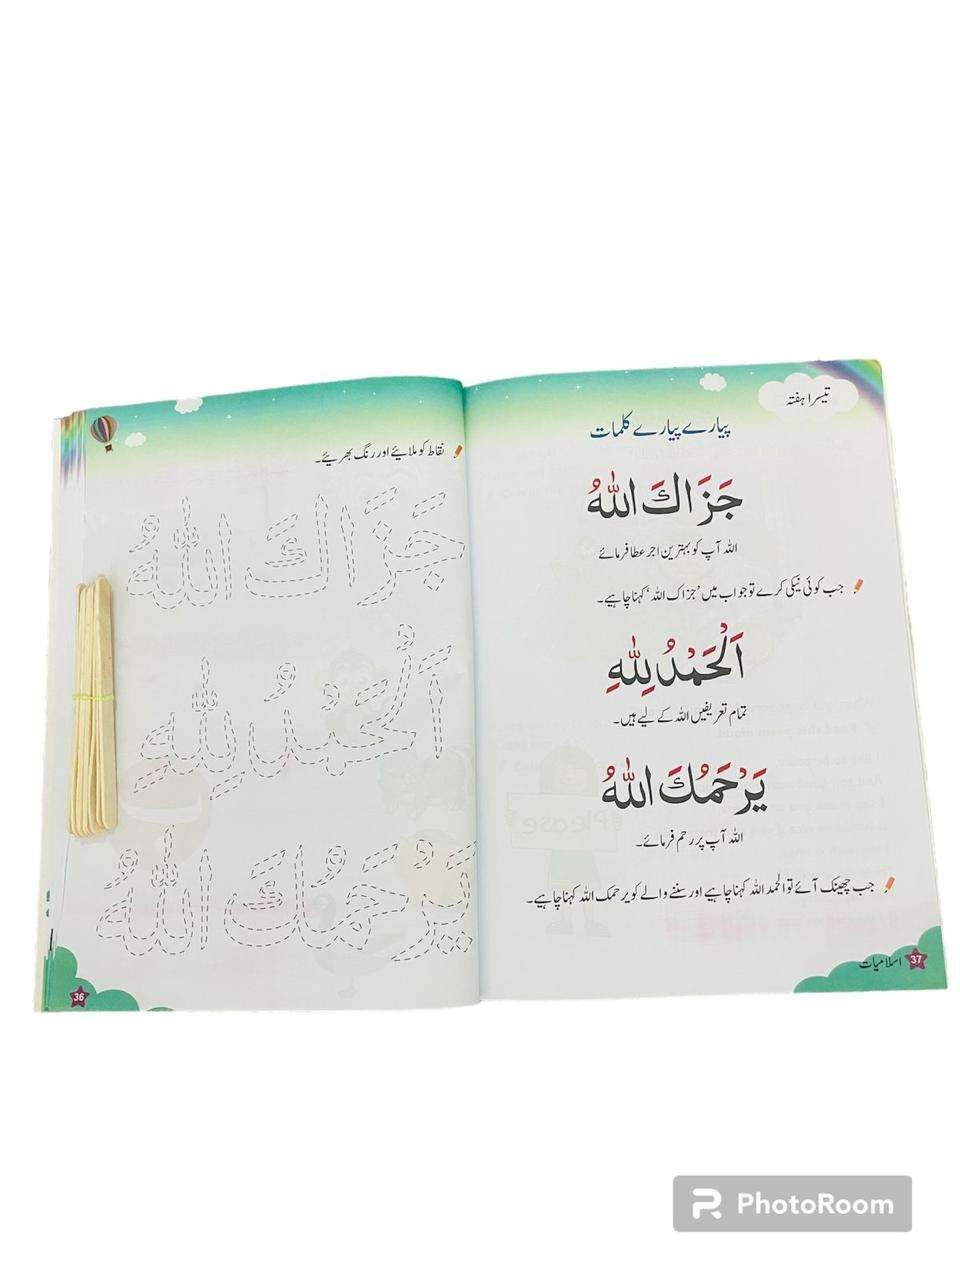 تیسرا ہفتہ
پیارے پیارے کلمات
جَزَاكَ اللهُ
اللہ آپ کو بہترین اجر عطا فرمائے
جب کوئی نیکی کرے تو جواب میں ’جزاک اللہ‘ کہنا چاہیے۔
اَلْحَمْدُ لِلّٰهِ
تمام تعریفیں اللہ کے لیے ہیں۔
يَرْحَمُكَ اللهُ
اللہ آپ پر رحم فرمائے۔
جب چھینک آئے تو الحمد اللہ کہنا چاہیے اور سننے والے کو یرحمک اللہ کہنا چاہیے۔
37 اسلامیات
نقاط کو ملائیے اور رنگ بھریئے۔
جَزَاكَ اللهُ
اَلْحَمْدُ لِلّٰهِ
يَرْحَمُكَ اللهُ
36
PhotoRoom